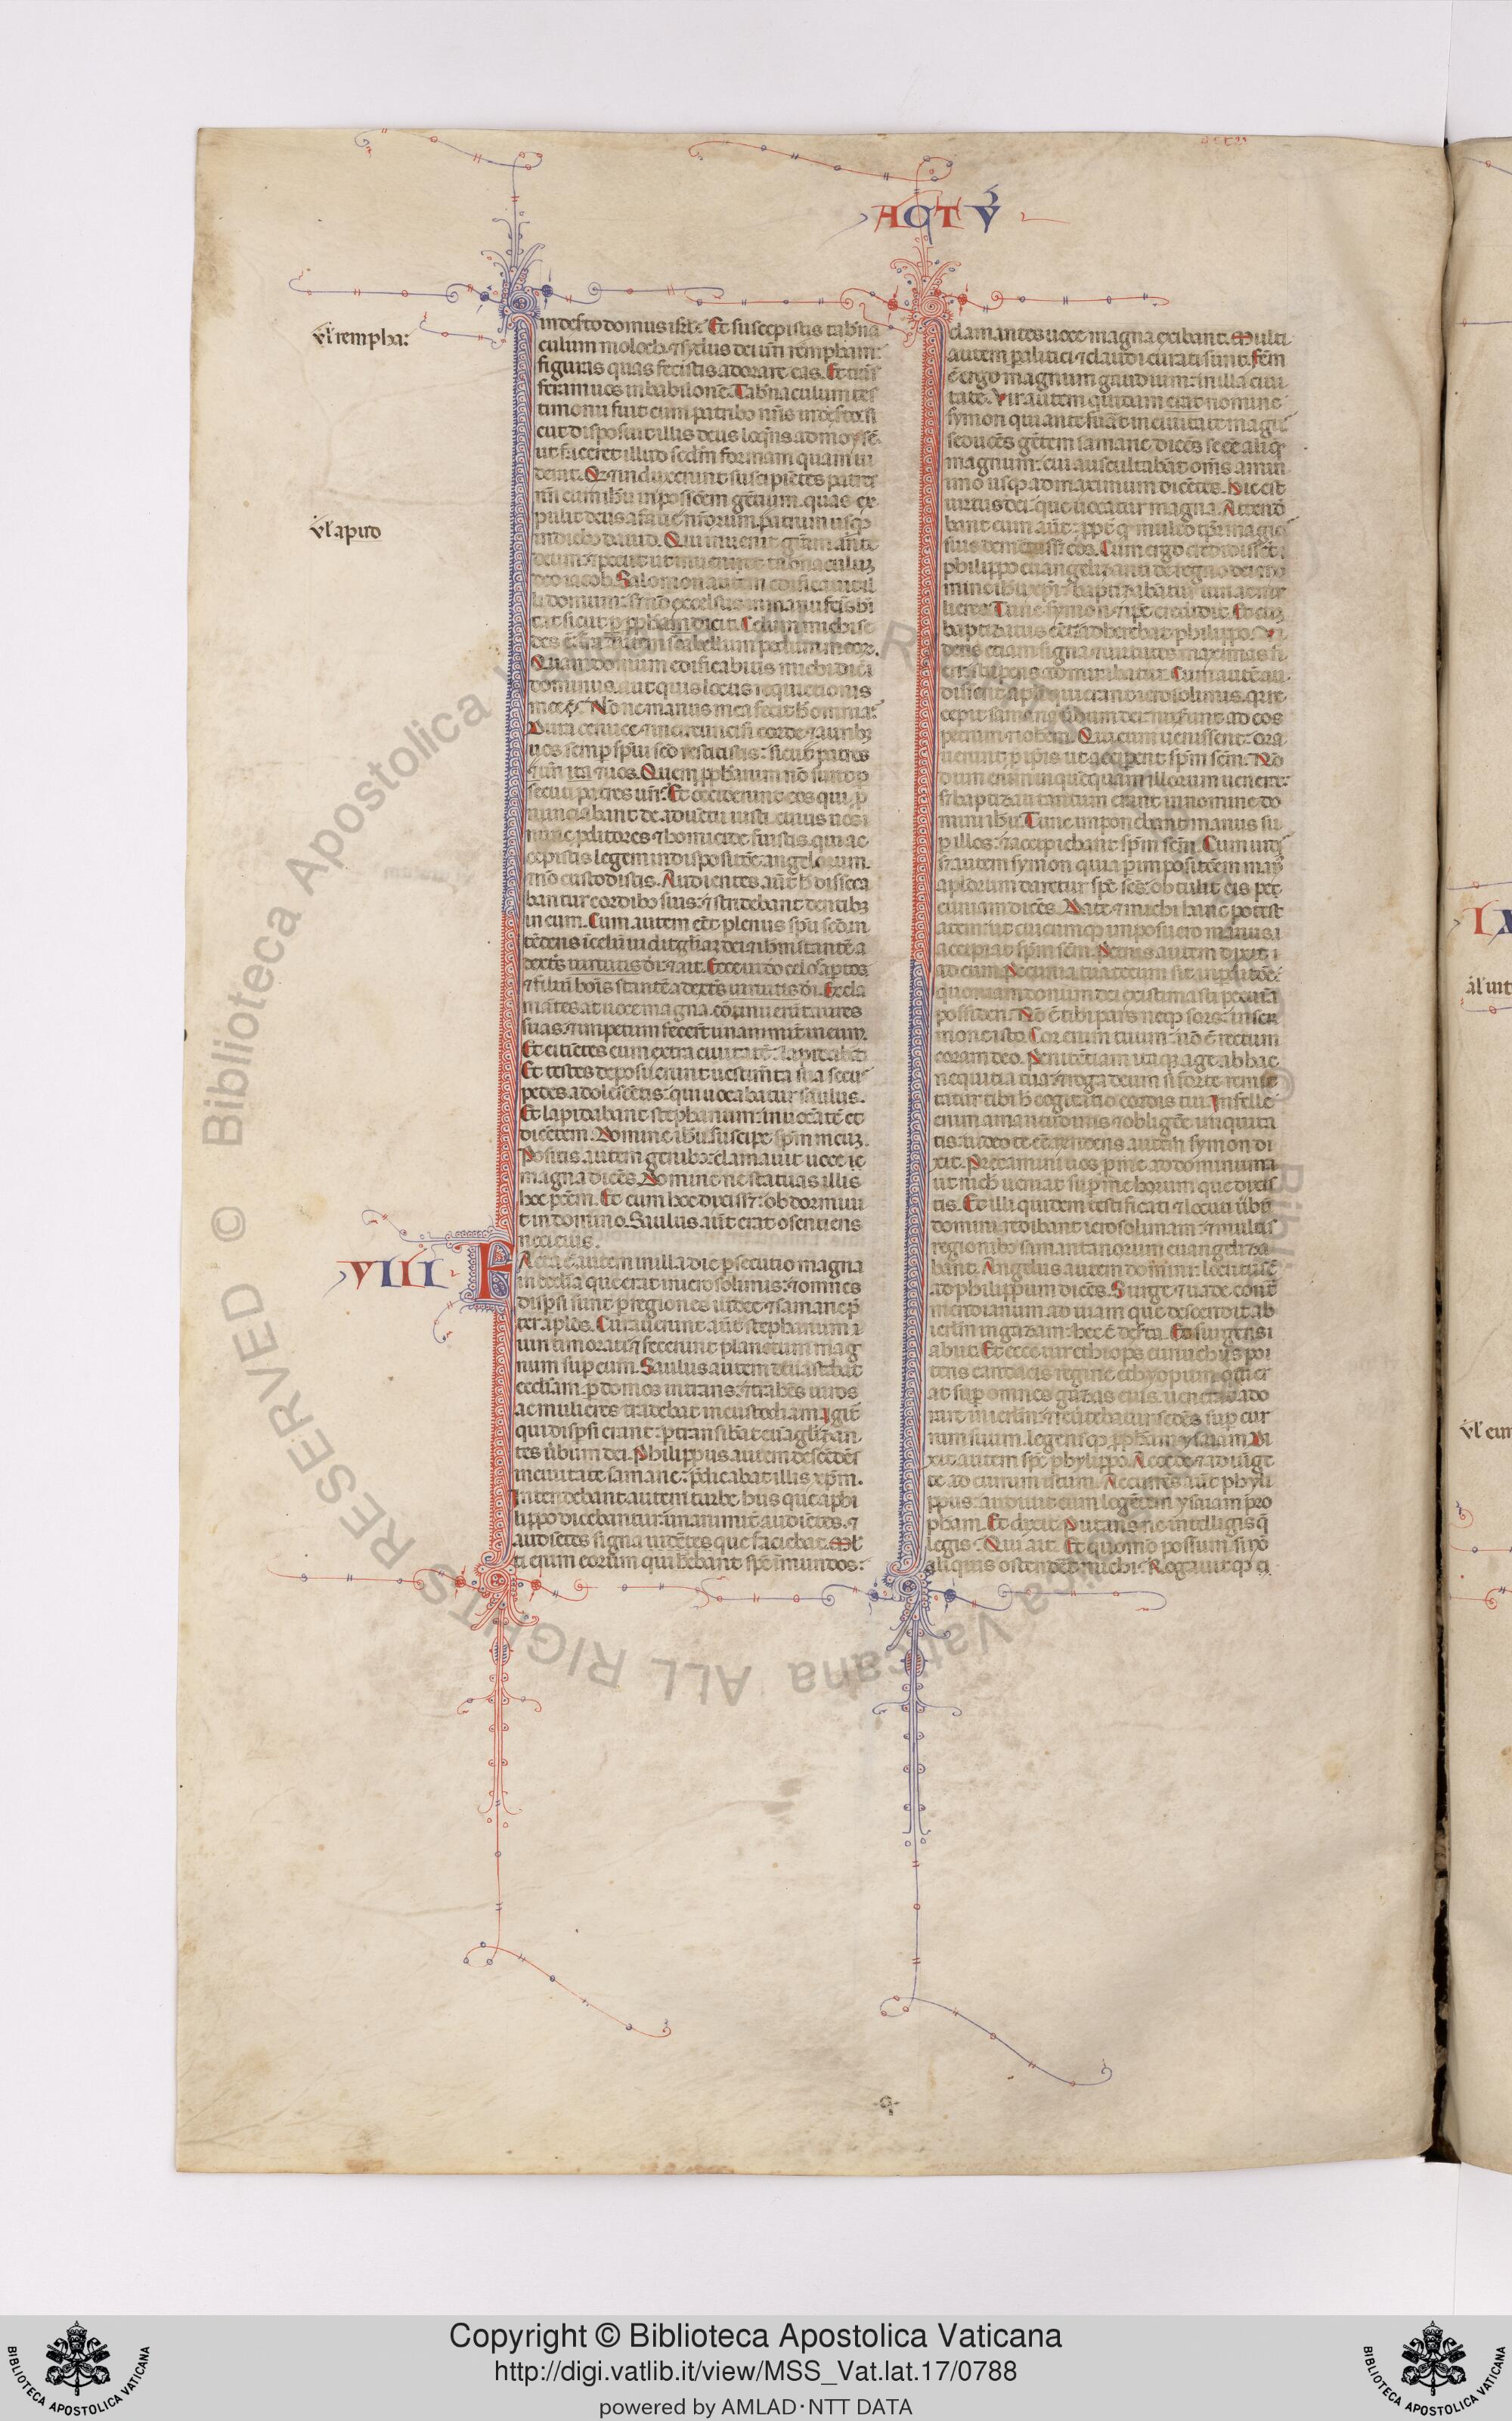 ACTV
vl rempha:
vl apud
VIII
in deſerto domus iſrl̃. Et ſuſcepiſtis tab̃na
culum moloch ⁊ ſydus dei ur̃i rempham:
figuras quas feciſtis adorare eas. Et trãſ
feram uos in babilonẽ. Tab̃naculum teſ
timonii fuit cum patribꝰ nr̃is in deſerto. ſi
cut diſpoſuit illis deus loq̃ns ad moyſẽ.
ut faceret illud ſecd̃m formam quam ui
derat. Qd̃ ⁊ induxerunt ſuſcipiẽtes patres
nr̃i cum ih̃u in poſſeſſiõem gẽtium. quas ex
pulit deus a facie nr̃orum. patrum uſqꝫ
in diebꝰ dauid. Qui inuenit gr̃am añte
deum: ⁊ peciit ut inueniret tab̃naculuꝫ
deo iacob. Salomon autem edificauit il
li domum: ſꝫ nõ excelſus in manu fc̃is h̃i
tat ſicut ꝑ ꝓph̃am dicit. Celum michi ſe
des ẽ. t̃ra autem ſcabellum pedum meoꝝ.
Quam domum edificabitis michi dicit
dominus. aut quis locus requietionis
mee ẽ? Nonne manus mea fecit h̃ omnia?
Dura ceruice ⁊ incircunciſi corde ⁊ auribꝫ
uos ſemꝑ ſpũi ſcõ reſtitiſtis: ſicut patres
ur̃i ita ⁊ uos. Quem ꝓph̃arum nõ ſunt ꝑ
ſecuti patres ur̃i? Et occiderunt eos qui ꝓ
nunciabant de aduẽtu iuſti. cuius uos
nunc ꝓditores ⁊ homicide fuiſtis. qui ac
cepiſtis legem in diſpoſitiõe angelorum.
⁊ nõ cuſtodiſtis. Audientes aũt h̃ diſſeca
bantur cordibꝰ ſuis: ⁊ ſtridebant dentibꝫ
in eum. Cum autem eẽt plenus ſpũ ſcõ. in
tẽdens ĩ celũ uidit gl̃iaꝫ dei ⁊ ih̃m ſtantẽ a
dextr̃s uirtutis dei. ⁊ ait. Ecce uideo celos aꝑtos
⁊ filiũ hoĩs ſtantẽ a dextr̃s uirtutis dei. Excla
mãtes aũt uoce magna. cõtinuer̃t aures
ſuas: ⁊ impetum fecer̃t unanimit̃ in eum.
Et eicĩetes eum extra ciuitatẽ: lapidabãt.
Et teſtes depoſuerunt ueſtim̃ta ſua ſecus
pedes adoleſcẽtis: qui uocabatur ſaulus.
Et lapidabant ſtephanum: inuocãtẽ et
dicẽtem. Domine ih̃u ſuſcipe ſpm̃ meuꝫ.
Poſitis autem genibꝰ: clamauit uoce
magna dicẽs. Domine ne ſtatuas illis
hoc pcc̃m. Et cum hoc dixiſſꝫ: obdormiui
t in domino. Saulus aũt erat ꝯſentiens
neci eius.
Facta ẽ autem in illa die ꝑſecutio magna
in eccl̃ia que erat in ieroſolimis: ⁊ omnes
diſꝑſi ſunt ꝑ regiones iudee ⁊ ſamarie p̃
ter apl̃os. Curauerunt aũt ſtephanum
uiri timorati: ⁊ fecerunt planctum mag
num ſuꝑ eum. Saulus autem deuaſtabat
eccl̃iam. ꝑ domos intrans. ⁊ trahẽs uiros
ac mulieres tradebat in cuſtodiam. Igit̃
qui diſꝑſi erant: ꝑtranſibãt euãglizan
tes ũbum dei. Philippus autem deſcẽdẽs
in ciuitatẽ ſamarie: p̃dicabat illis xp̃m.
Intendebant autem turbe hiis que a phi
lippo dicebantur: unanimit̃ audiẽtes. ⁊
audiẽtes ſigna uidẽtes que faciebat. Ml̃
ti enim eorum qui h̃ebant ſp̃c ĩmundos:
clamantes uoce magna exibant. Multi
autem palitici ⁊ claudi curati ſunt. Fc̃m
ẽ ergo magnum gaudium: in illa ciui
tate. Vir autem quidam erat nomine
ſymon qui ante fuãt in ciuitate magꝰ
ſeducẽs gẽtem ſamarie. dicẽs ſe eẽ aliqẽ
magnum: cui auſcultabãt oms̃ a mini
mo uſqꝫ ad maximum dicẽtes. Hic eſt
uirtus dei: que uocatur magna. Attend̃e
bant eum aũt: ꝓpt̃ qd̃ multo tp̃r̃ magic̃
ſuis demẽtaſſꝫ eos. Cum ergo credidiſſẽt
philippo euangelizanti de regno dei: in no
mine ih̃u xp̃i: baptizabãtur uiri ac mu
lieres. Tunc ſymon ⁊ ip̃e credidit. Et cuꝫ
baptizatus eẽt: adherebat philippo. Vi
dens etiam ſigna ⁊ uirtutes maximas fi
eri: ſtupens admirabatur. Cum autẽ au
diſſent apl̃i qui erant ieroſolimis. qr̃ re
cepit ſamaria ũbum dei: miſerunt ad eos
petrum ⁊ ioh̃em. Qui cum ueniſſent: ora
uerunt ꝓ ip̃is ut acciꝑent ſpm̃ ſcm̃. Nõ
dum enim in quẽquam illorum uenerat:
ſꝫ baptizati tantum erant in nomine do
mini ih̃u. Tunc imponebant manus ſu
ꝑ illos: ⁊ accipiebant ſpm̃ ſcm̃. Cum uidiſ
ſꝫ autem ſymon quia ꝑ impoſitiõem manꝰ
apl̃orum daretur ſp̃c ſc̃s: obtulit eis pec
cuniam dicẽs. Date ⁊ michi hanc poteſt
atem: ut cuicumqꝫ impoſuero manus:
accipiat ſpm̃ ſcm̃. Petrus autem dixit
ad eum. Pecunia tua tecum ſit in ꝑditiõe:
quoniam donum dei exiſtimaſti pecunia
poſſideri. Nõ ẽ tibi pars neqꝫ ſors: in ſer
mone iſto. Cor enim tuum: nõ ẽ rectum
coram deo. Penitẽtiam itaqꝫ age ab hac
nequitia tua: ⁊ roga deum ſi forte remit
tatur tibi h̃ cogitatio cordis tui. In felle
enim amaritudinis ⁊ obligatiõe iniquita
tis: uideo te eẽ. Rñdens autem ſymon di
xit. Precamini uos ꝓ me ad dominum:
ut nich̃ ueniat ſuꝑ me horum que dixiſ
tis. Et illi quidem teſtificati ⁊ locuti ũbũ
domini redibant ieroſolimam: ⁊ multis
regionibꝰ ſamaritanorum euangeliza
bant. Angelus autem domini: locutus ẽ
ad philippum dicẽs. Surge ⁊ uade cont̃
meridianum ad uiam que deſcendit ab
ierl̃m in gazam: hec ẽ deſerta. Et ſurgens
abiit. Et ecce uir ethiops eunuchus po
tens candacis regine ethyopum: qui er
at ſuꝑ omnes gazas eius. uenerat ado
rare in ierl̃m: ⁊ reũtebatur ſedẽs ſuꝑ cur
rum ſuum. legenſqꝫ ꝓph̃am yſaiam. Di
xit autem ſp̃c phylippo. Accede ⁊ adiũge
te ad currum iſtum. Accurrẽs aũt phyli
ppus: audiuit eum legẽtem yſaiam pro
pham. Et dixit. Putas ne intelligis q̃
legis? Qui ait. Et quomõ poſſum: ſi nõ
aliquis oſtendẽt michi? Rogauitqꝫ
Copyright © Biblioteca Apostolica Vaticana
http://digi.vatlib.it/view/MSS_Vat.lat.17/0788
powered by AMLAD·NTT DATA
BIBLIOTECA APOSTOLICA VATICANA
BIBLIOTECA APOSTOLICA VATICANA
© Biblioteca Apostolica Vaticana ALL RIGHTS RESERVED